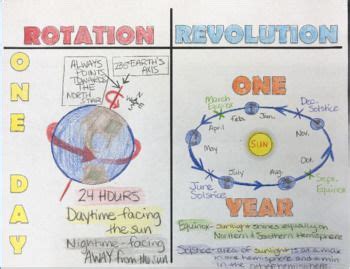 ROTATION
REVOLUTION
ONE DAY
ALWAYS
POINTS
TOWARDS
THE
NORTH
STAR
23.5° EARTH'S
AXIS
24 HOURS
Daytime-facing
the sun
Nightime-facing
AWAY from the sun
ONE
March
Equinox
Dec.
Solstice
Feb.
Jan.
April
Nov.
May
SUN
Oct.
July
Aug.
June
Solstice
Sept.
Equinox
YEAR
Equinox-sunlight shines equally on
Northern & Southern Hemisphere
Solstice-area of sunlight is at a max
in one hemisphere and a min
in the other hemisphere